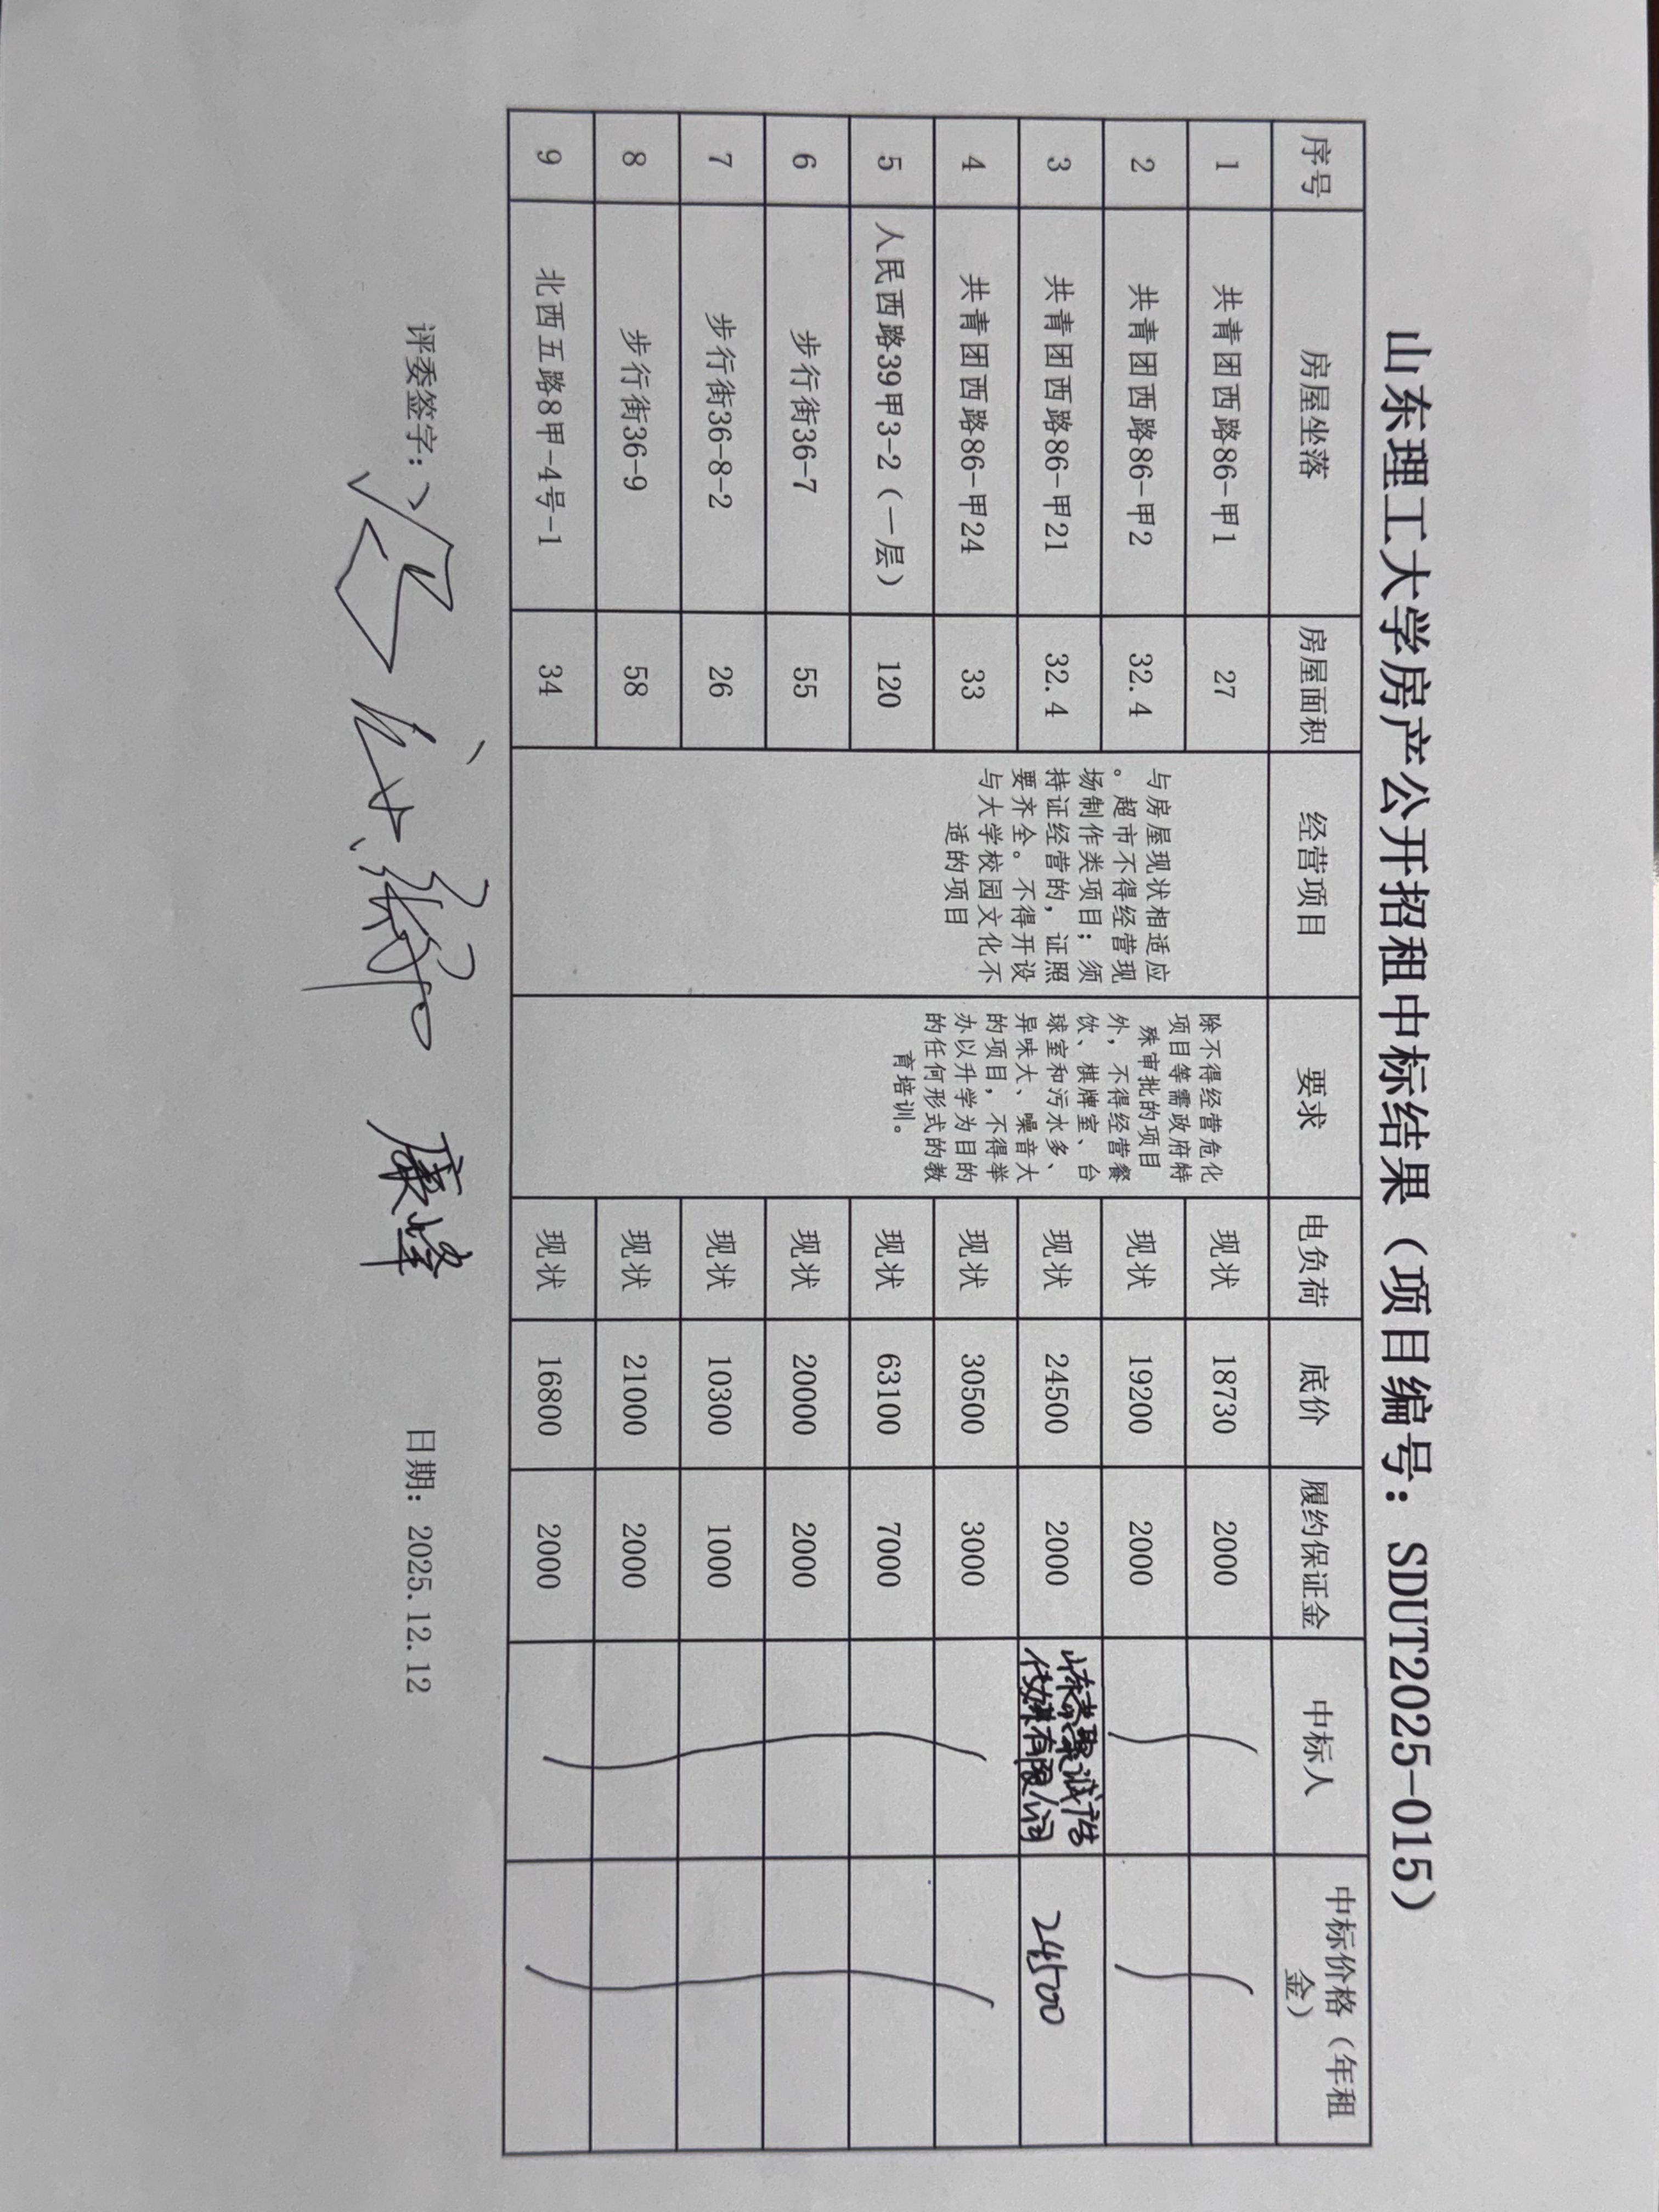 山东理工大学房产公开招租中标结果（项目编号：SDUT2025-015）
序号 房屋坐落 房屋面积 经营项目 要求 电负荷 底价 履约保证金 中标人 中标价格（年租
金）
1 共青团西路86-甲1 27 现状 18730 2000
2 共青团西路86-甲2 32.4 现状 19200 2000
3 共青团西路86-甲21 32.4 现状 24500 2000 24500
4 共青团西路86-甲24 33 现状 30500 3000
5 人民西路39甲3-2（一层） 120 现状 63100 7000
6 步行街36-7 55 现状 20000 2000
7 步行街36-8-2 26 现状 10300 1000
8 步行街36-9 58 现状 21000 2000
9 北西五路8甲-4号-1 34 现状 16800 2000
与房屋现状相适应
。超市不得经营现
场制作类项目；须
持证经营的，证照
要齐全。不得开设
与大学校园文化不
适的项目
除不得经营危化
项目等需政府特
殊审批的项目
外，不得经营餐
饮、棋牌室、台
球室和污水多、
异味大、噪音大
的项目，不得举
办以升学为目的
的任何形式的教
育培训。
有限公司
评委签字： 康峰 日期：2025.12.12